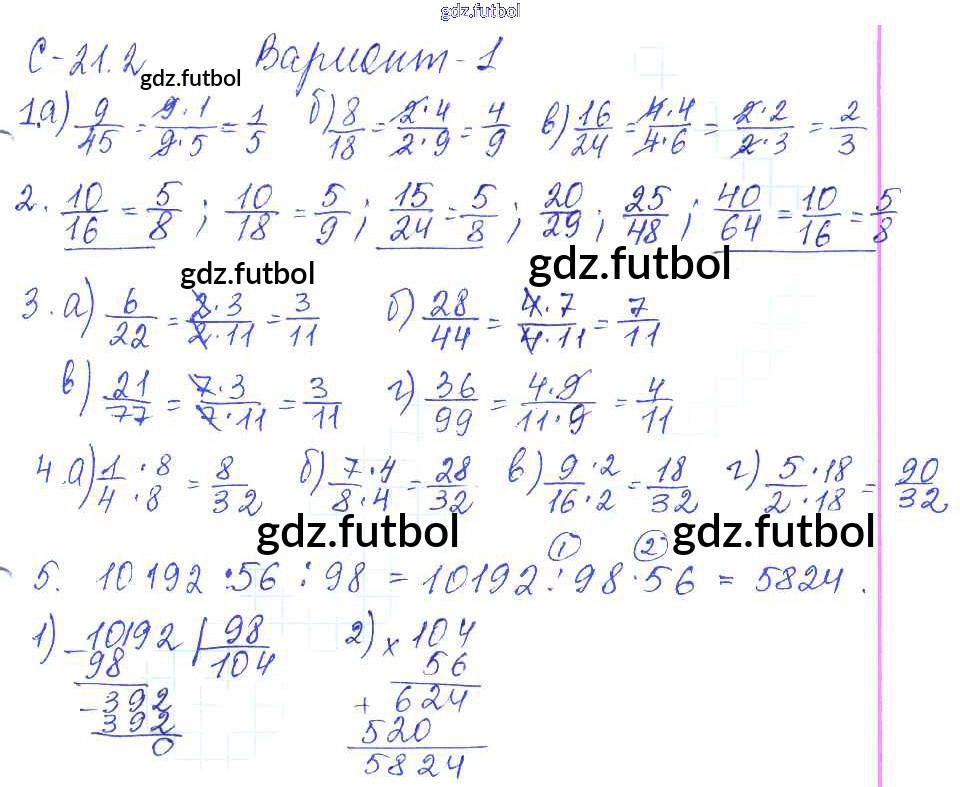 gdz.futbol
С-21.2 gdz.futbol Вариант-1
1.а) 9/45 = 9·1/9·5 = 1/5 б) 8/18 = 2·4/2·9 = 4/9 в) 16/24 = 4·4/4·6 = 2·2/2·3 = 2/3
2. 10/16 = 5/8 ; 10/18 = 5/9 ; 15/24 = 5/8 ; 20/29 ; 25/48 ; 40/64 = 10/16 = 5/8
gdz.futbol gdz.futbol
3. а) 6/22 = 2·3/2·11 = 3/11 б) 28/44 = 4·7/4·11 = 7/11
в) 21/77 = 7·3/7·11 = 3/11 г) 36/99 = 4·9/11·9 = 4/11
4.а) 1·8/4·8 = 8/32 б) 7·4/8·4 = 28/32 в) 9·2/16·2 = 18/32 г) 5·18/2·18 = 90/32
gdz.futbol gdz.futbol
① ②
5. 10192 · 56 : 98 = 10192 : 98 · 56 = 5824.
1) – 10192 | 98 2) × 104
98 104 56
– 392 + 624
392 520
0 5824